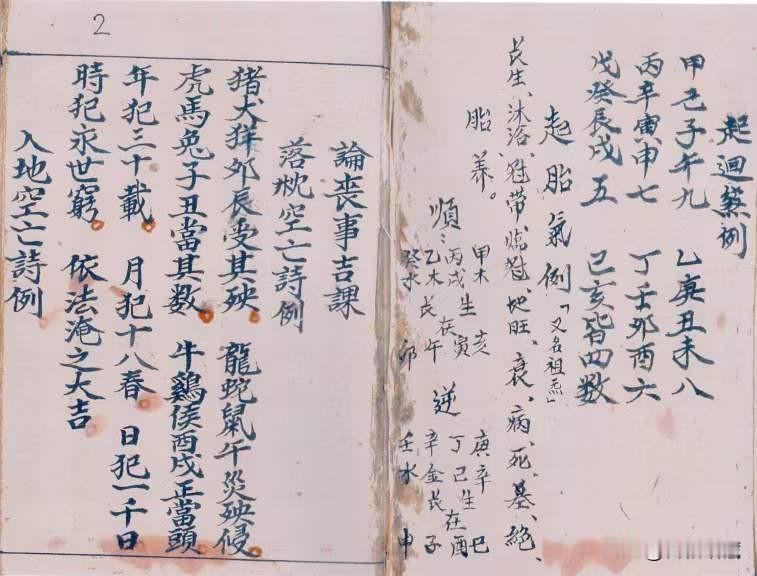 起迴煞例
甲己子午九 乙庚丑未八
丙辛寅申七 丁壬卯酉六
戊癸辰戌五 己亥皆四数
起胎氣例「又名祖炁」
長生、沐浴、冠帶、临冠、地旺、衰、病、死、墓、絶、
胎养。
順： 逆
甲木 亥 庚辛 巳
丙戊生在寅 丁己生在酉
乙木長午 辛金長子
癸水 卯 壬水 申
2
論喪事吉課
落枕空亡詩例
猪犬羊卯辰受其殃。 龍蛇鼠午災殃侵。
虎馬兔子丑當其数。 牛鷄侯酉戌正當頭
年犯三十載。 月犯十八春。 日犯一千日
時犯永世窮。 依法淹之大吉。
入地空亡詩例